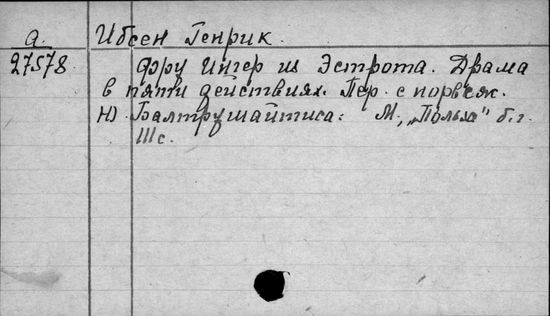 а. Ибсен Генрик.
27578 Фру Ингер из Эстрота. Драма
в пяти действиях. Пер. с норвеж.
Ю. Балтрушайтиса. М., „Польза" б.г.